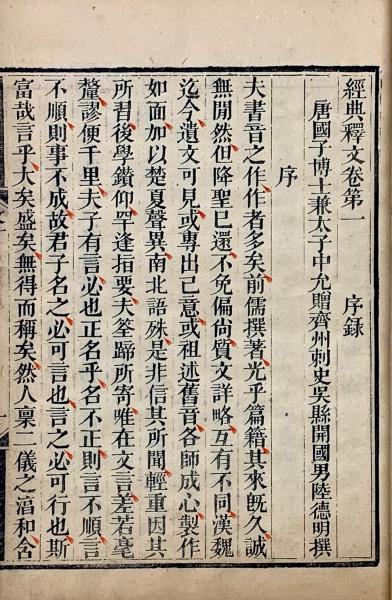 經典釋文卷第一 序錄
唐國子博士兼太子中允贈齊州刺史吳縣開國男陸德明撰
序
夫書音之作作者多矣前儒撰著光乎篇籍其來旣久誠
無閒然但降聖已還不免偏尚質文詳略互有不同漢魏
迄今遺文可見或專出己意或祖述舊音各師成心製作
如面加以楚夏聲異南北語殊是非信其所聞輕重因其
所習後學鑽仰罕逢指要夫筌蹄所寄唯在文言差若毫
釐謬便千里夫子有言必也正名乎名不正則言不順言
不順則事不成故君子名之必可言也言之必可行也斯
富哉言乎大矣盛矣無得而稱矣然人稟二儀之淳和含